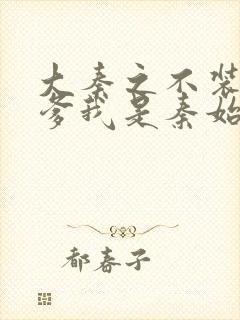 大秦之不装
爹我是秦始
都春子